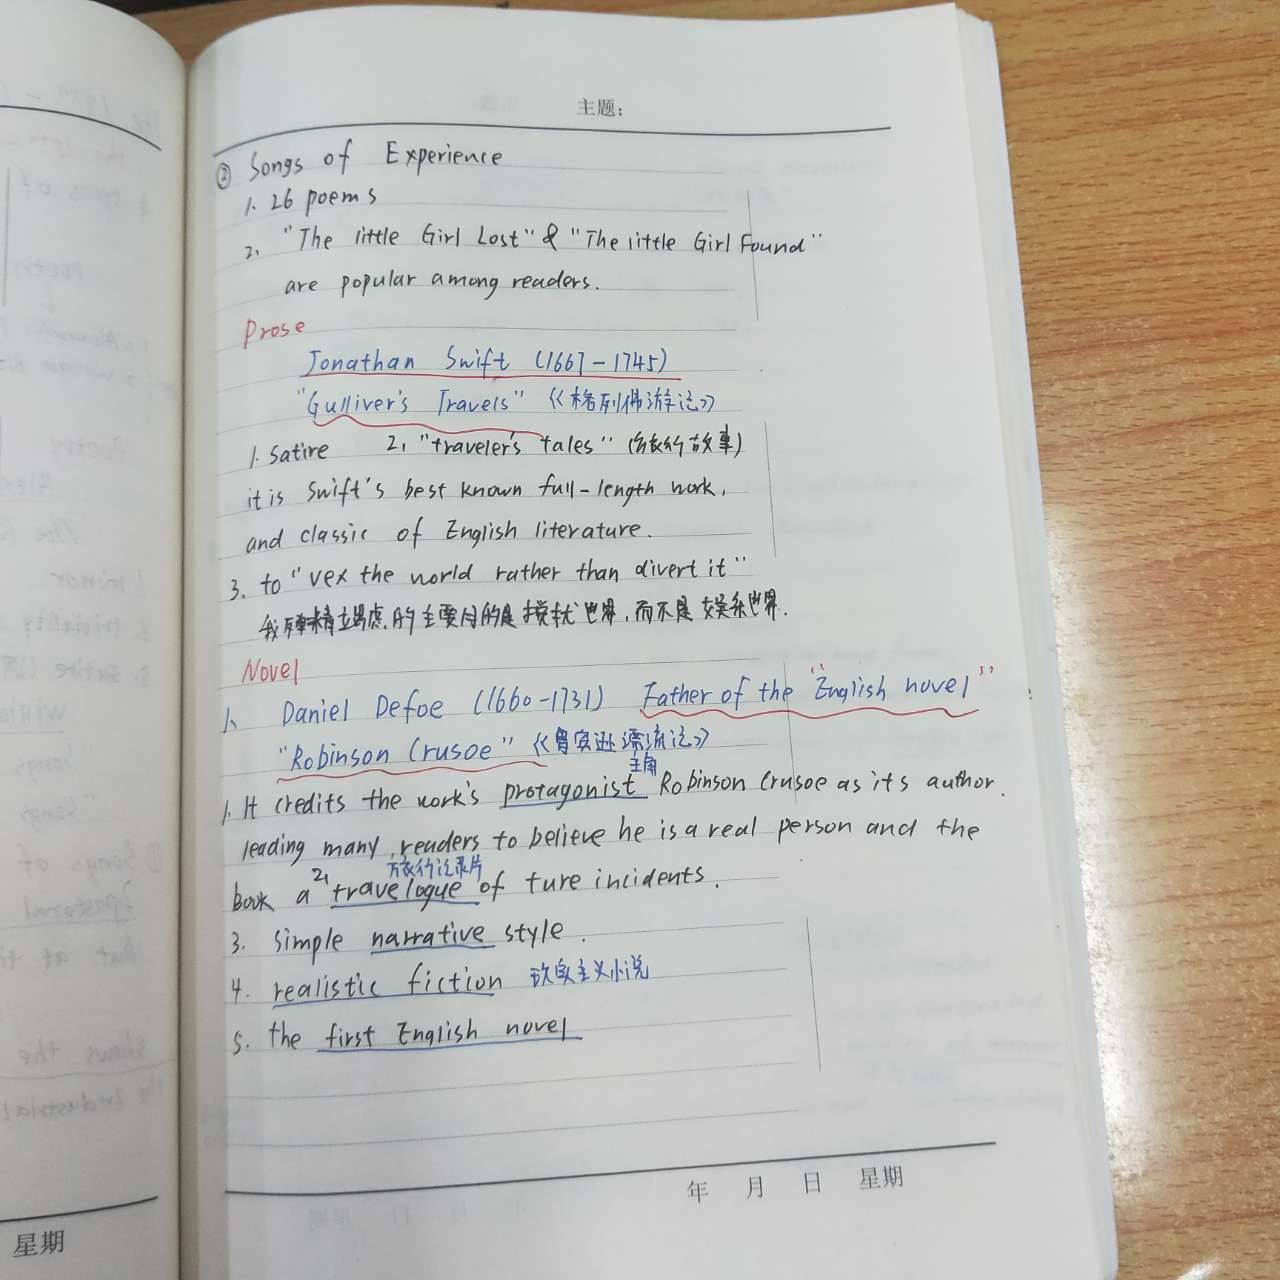 主题:
② Songs of Experience
1. 26 poems
2. "The little Girl Lost" & "The little Girl Found"
are popular among readers.
Prose
Jonathan Swift (1667-1745)
"Gulliver's Travels" 《格列佛游记》
1. Satire 2. "traveler's tales" (旅行故事)
it is Swift's best known full-length work,
and classic of English literature.
3. to "vex the world rather than divert it"
我殚精竭虑的主要目的是搅扰世界,而不是娱乐世界.
Novel
1. Daniel Defoe (1660-1731) Father of the "English novel"
"Robinson Crusoe" 《鲁宾逊漂流记》
主角
1. It credits the work's protagonist Robinson Crusoe as its author.
leading many readers to believe he is a real person and the
旅行记录片
book a 2. travelogue of ture incidents.
3. simple narrative style.
4. realistic fiction 现实主义小说
5. the first English novel
年 月 日 星期
星期